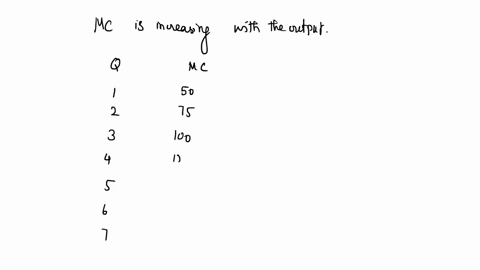 MC is increasing with the output.
Q MC
1 50
2 75
3 100
4 1
5
6
7